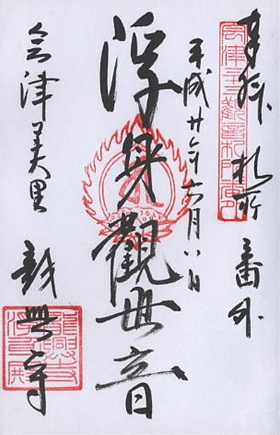 奉拝 札所 番外
平成廿六年六月八日
浮身觀世音
会津美里 龍興寺